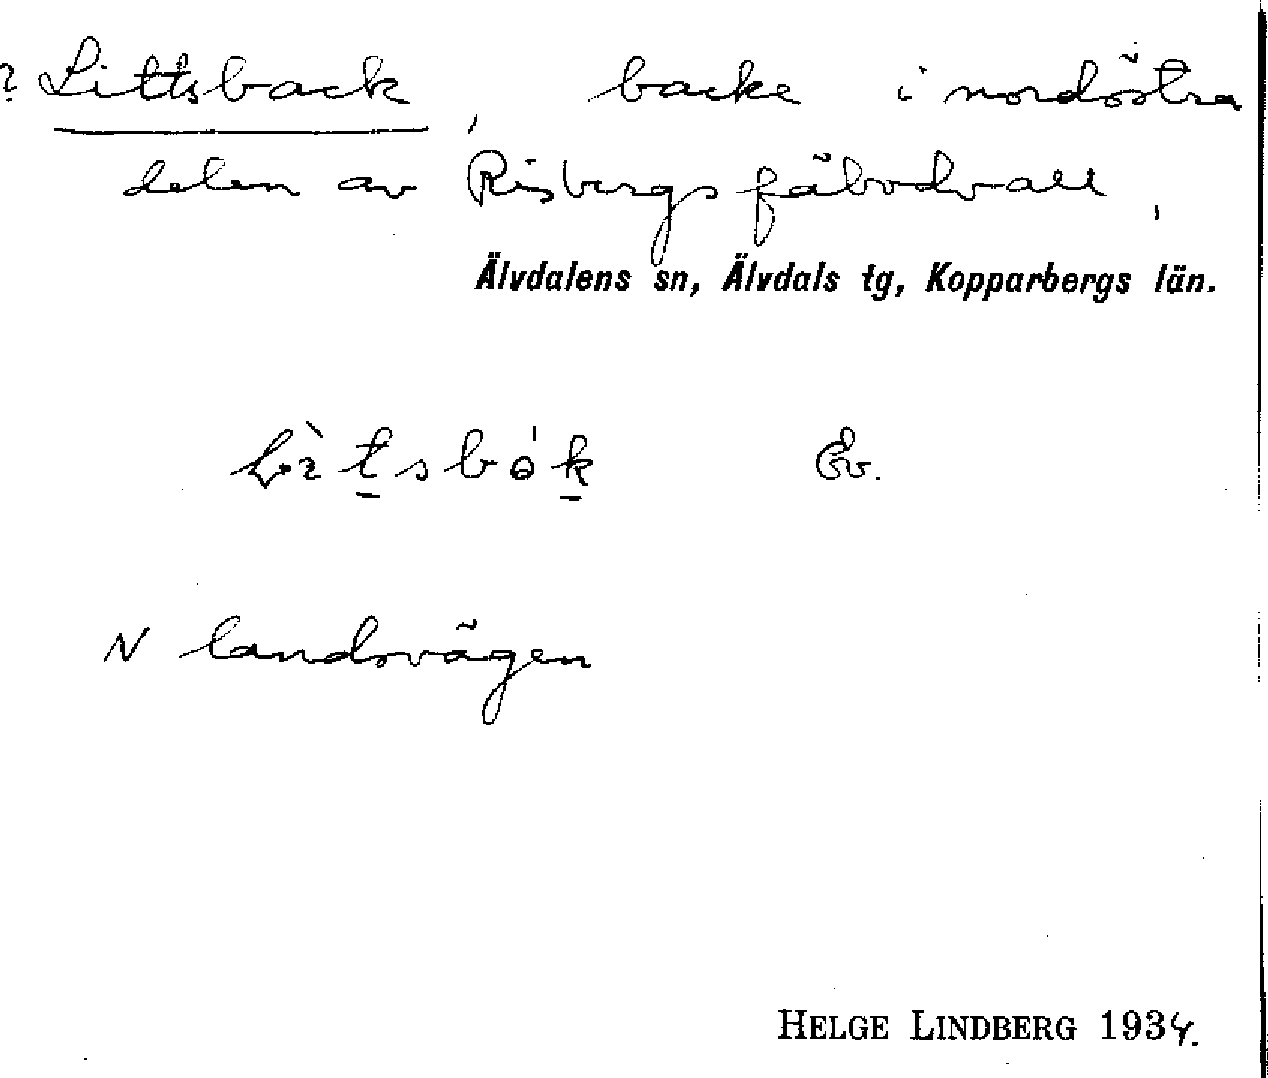 ? Littsback, backe i nordöstra
delen av Risbergs fäbodvall,
Älvdalens sn, Älvdals tg, Kopparbergs län.
Ev.
N landsvägen
HELGE LINDBERG 1934.